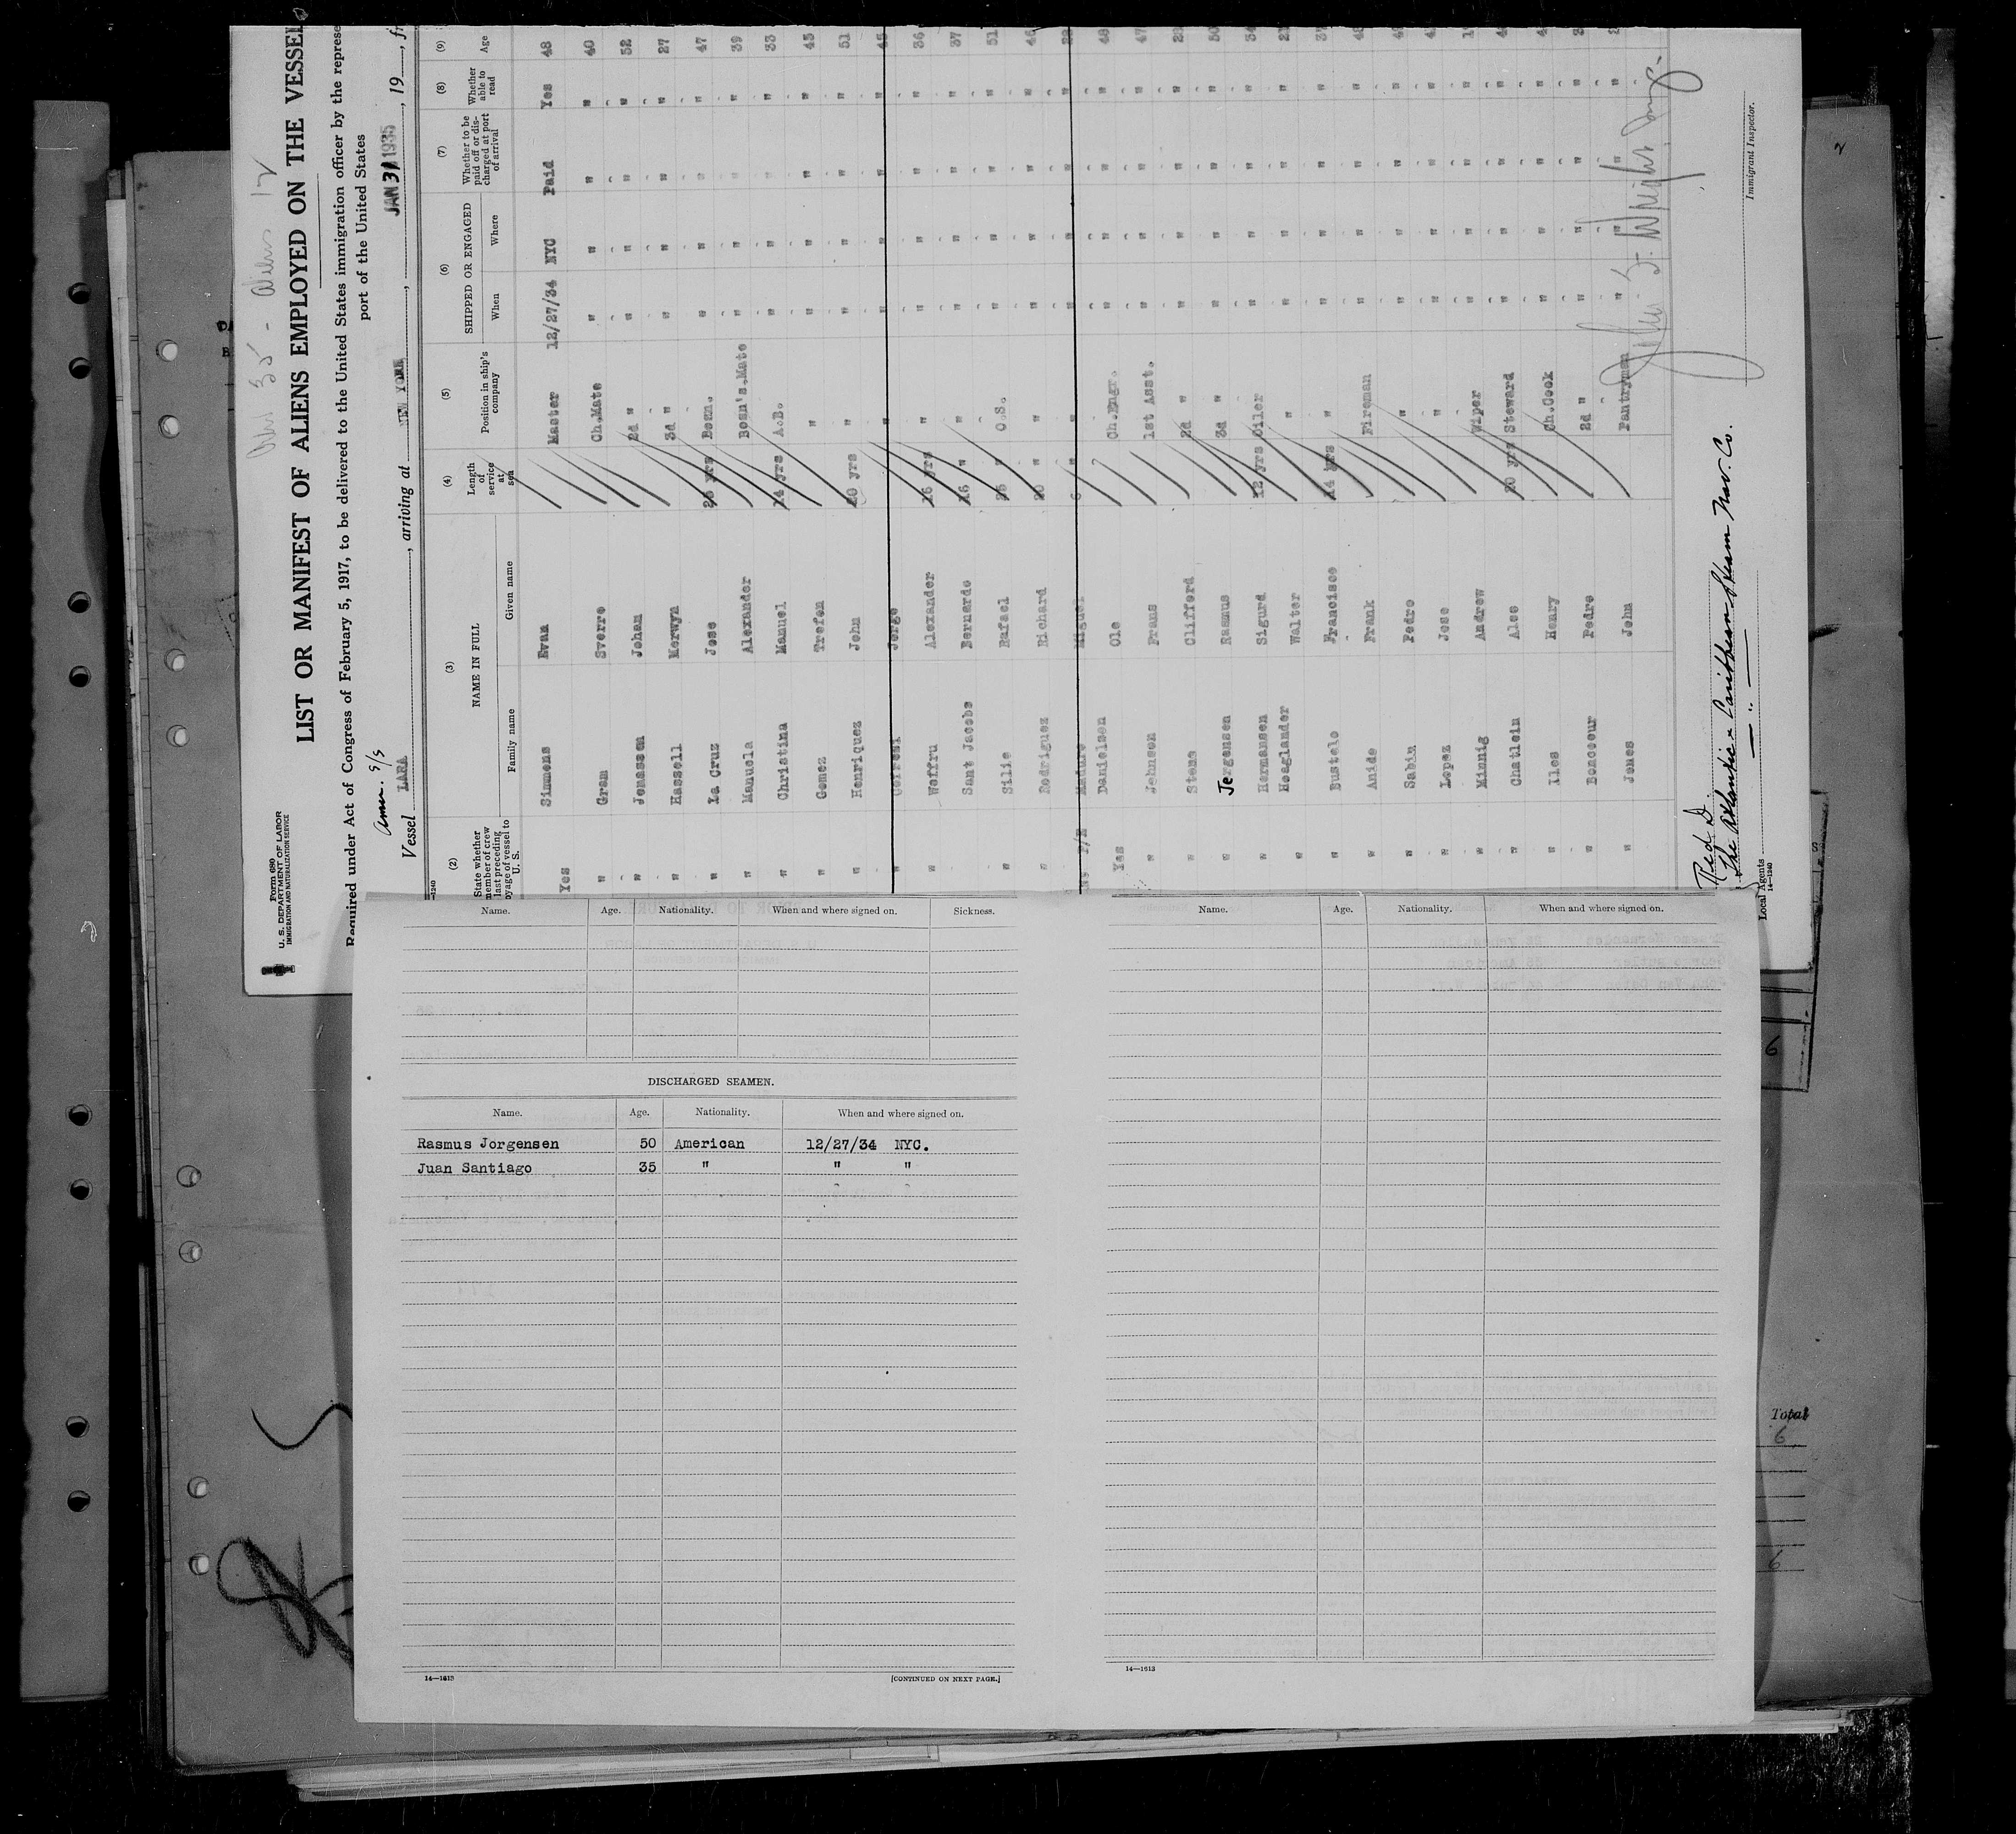 Form 680
U. S. DEPARTMENT OF LABOR
IMMIGRATION AND NATURALIZATION SERVICE
LIST OR MANIFEST OF ALIENS EMPLOYED ON THE VESSEL
Required under Act of Congress of February 5, 1917, to be delivered to the United States immigration officer by the represe
port of the United States
Amer. S/S
Vessel LARA, arriving at NEW YORK, JAN 31 1935, 19
(2) (3) (4) (5) (6) (7) (8) (9)
State whether member of crew last preceding voyage of vessel to U. S. NAME IN FULL Family name Given name Length of service at sea Position in ship's company SHIPPED OR ENGAGED When Where Whether to be paid off or discharged at port of arrival Whether able to read Age
Yes Simmons Evan Master 12/27/34 NYC Paid Yes 48
" Gram Sverre Ch.Mate " " " " 40
" Jonassen Johan 2d " " " " " 52
" Hassell Merwyn 3d " " " " " 27
" La Cruz Jose 25 yrs Bosn. " " " " 47
" Manuela Alexander Bosn's.Mate " " " " 39
" Christina Manuel 14 yrs A.B. " " " " 33
" Gomez Trefon " " " " " 45
" Henriquez John 20 yrs " " " " " 51
" Jorge " " " " " 45
" Weffru Alexander 16 yrs " " " " " 36
Sant Jacobs Bernardo 16 " " " " " " 37
" Silie Rafael 25 " O.S. " " " " 51
" Rodriguez Richard 20 " " " " " " 46
No P/R Maduro Miguel 6 " " " " " "
Yes Danielsen Ole Ch.Engr. " " " " 48
" Johnson Frans 1st Asst. " " " " 47
" Stene Clifford 2d " " " " "
" Jorgensen Rasmus 3d " " " " " 50
" Hermansen Sigurd 12 yrs Oiler " " " " 34
" Hoaglander Walter " " " " "
" Bustelo Francisco 14 yrs " " " " "
" Anido Frank Fireman " " " "
" Sabin Pedro " " " " "
" Lopez Jose " " " " "
" Minnig Andrew Wiper " " " "
" Chatlein Alec 20 yrs Steward " " " "
" Iles Henry Ch.Cook " " " "
" Boncoeur Pedro 2d " " " " "
" Jones John Pantryman " " "
Red D.
The Atlantic & Caribbean Steam Nav. Co.
Local Agents
14—1240
Immigrant Inspector.
Name. Age. Nationality. When and where signed on. Sickness.
DISCHARGED SEAMEN.
Name. Age. Nationality. When and where signed on.
Rasmus Jorgensen 50 American 12/27/34 NYC.
Juan Santiago 35 " " "
14—1613 [CONTINUED ON NEXT PAGE.]
Name. Age. Nationality. When and where signed on.
14—1613
Total
6
6